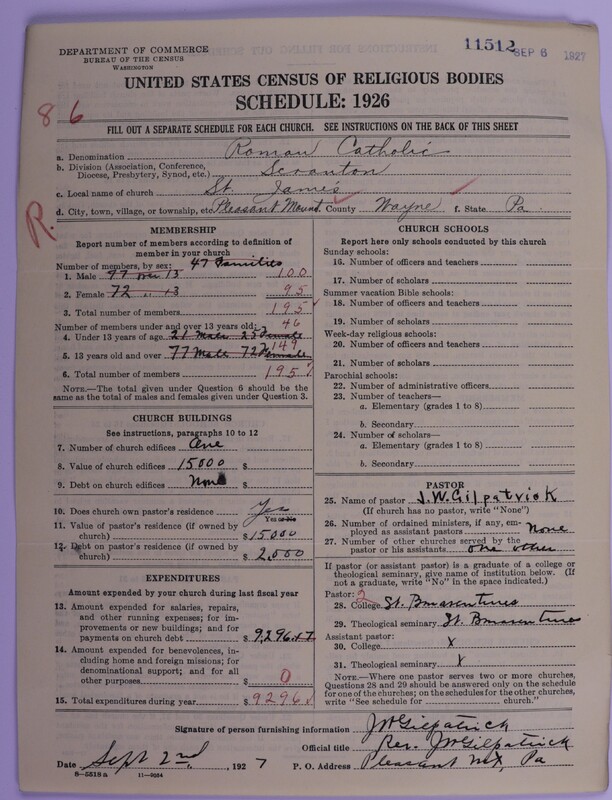 DEPARTMENT OF COMMERCE
BUREAU OF THE CENSUS
WASHINGTON
11512 SEP 6 1927
UNITED STATES CENSUS OF RELIGIOUS BODIES
SCHEDULE: 1926
86
FILL OUT A SEPARATE SCHEDULE FOR EACH CHURCH. SEE INSTRUCTIONS ON THE BACK OF THIS SHEET
a. Denomination Roman Catholic
b. Division (Association, Conference, Diocese, Presbytery, Synod, etc.) Scranton
c. Local name of church St. James
d. City, town, village, or township, etc. Pleasant Mount. County Wayne f. State Pa.
R.
MEMBERSHIP
Report number of members according to definition of
member in your church
Number of members, by sex: 47 Families
1. Male 77 over 13 100
2. Female 72 " 13 95
3. Total number of members 195
Number of members under and over 13 years old: 46
4. Under 13 years of age 21 Male 25 Female
149
5. 13 years old and over 77 Male 72 Female
6. Total number of members 195
NOTE.—The total given under Question 6 should be the
same as the total of males and females given under Question 3.
CHURCH BUILDINGS
See instructions, paragraphs 10 to 12
7. Number of church edifices One
8. Value of church edifices 15000 $
9. Debt on church edifices None $
10. Does church own pastor's residence Yes
Yes or No
11. Value of pastor's residence (if owned by
church) $15000
12. Debt on pastor's residence (if owned by
church) $2,000
EXPENDITURES
Amount expended by your church during last fiscal year
13. Amount expended for salaries, repairs,
and other running expenses; for im-
provements or new buildings; and for
payments on church debt $9,296.17
14. Amount expended for benevolences, in-
cluding home and foreign missions; for
denominational support; and for all
other purposes $0
15. Total expenditures during year $9296
CHURCH SCHOOLS
Report here only schools conducted by this church
Sunday schools:
16. Number of officers and teachers
17. Number of scholars
Summer vacation Bible schools:
18. Number of officers and teachers
19. Number of scholars
Week-day religious schools:
20. Number of officers and teachers
21. Number of scholars
Parochial schools:
22. Number of administrative officers
23. Number of teachers—
a. Elementary (grades 1 to 8)
b. Secondary
24. Number of scholars—
a. Elementary (grades 1 to 8)
b. Secondary
PASTOR
25. Name of pastor J. W. Gilpatrick
(If church has no pastor, write "None")
26. Number of ordained ministers, if any, em-
ployed as assistant pastors None
27. Number of other churches served by the
pastor or his assistants one other
If pastor (or assistant pastor) is a graduate of a college or
theological seminary, give name of institution below. (If
not a graduate, write "No" in the space indicated.)
Pastor: 2
28. College St. Bonaventures
29. Theological seminary St. Bonaventures
Assistant pastor:
30. College X
31. Theological seminary X
NOTE.—Where one pastor serves two or more churches,
Questions 28 and 29 should be answered only on the schedule
for one of the churches; on the schedules for the other churches,
write "See schedule for church."
Signature of person furnishing information JW Gilpatrick
Official title Rev. JW Gilpatrick
Date Sept 2nd, 1927 P. O. Address Pleasant Mt, Pa
8-5518 a 11-9034